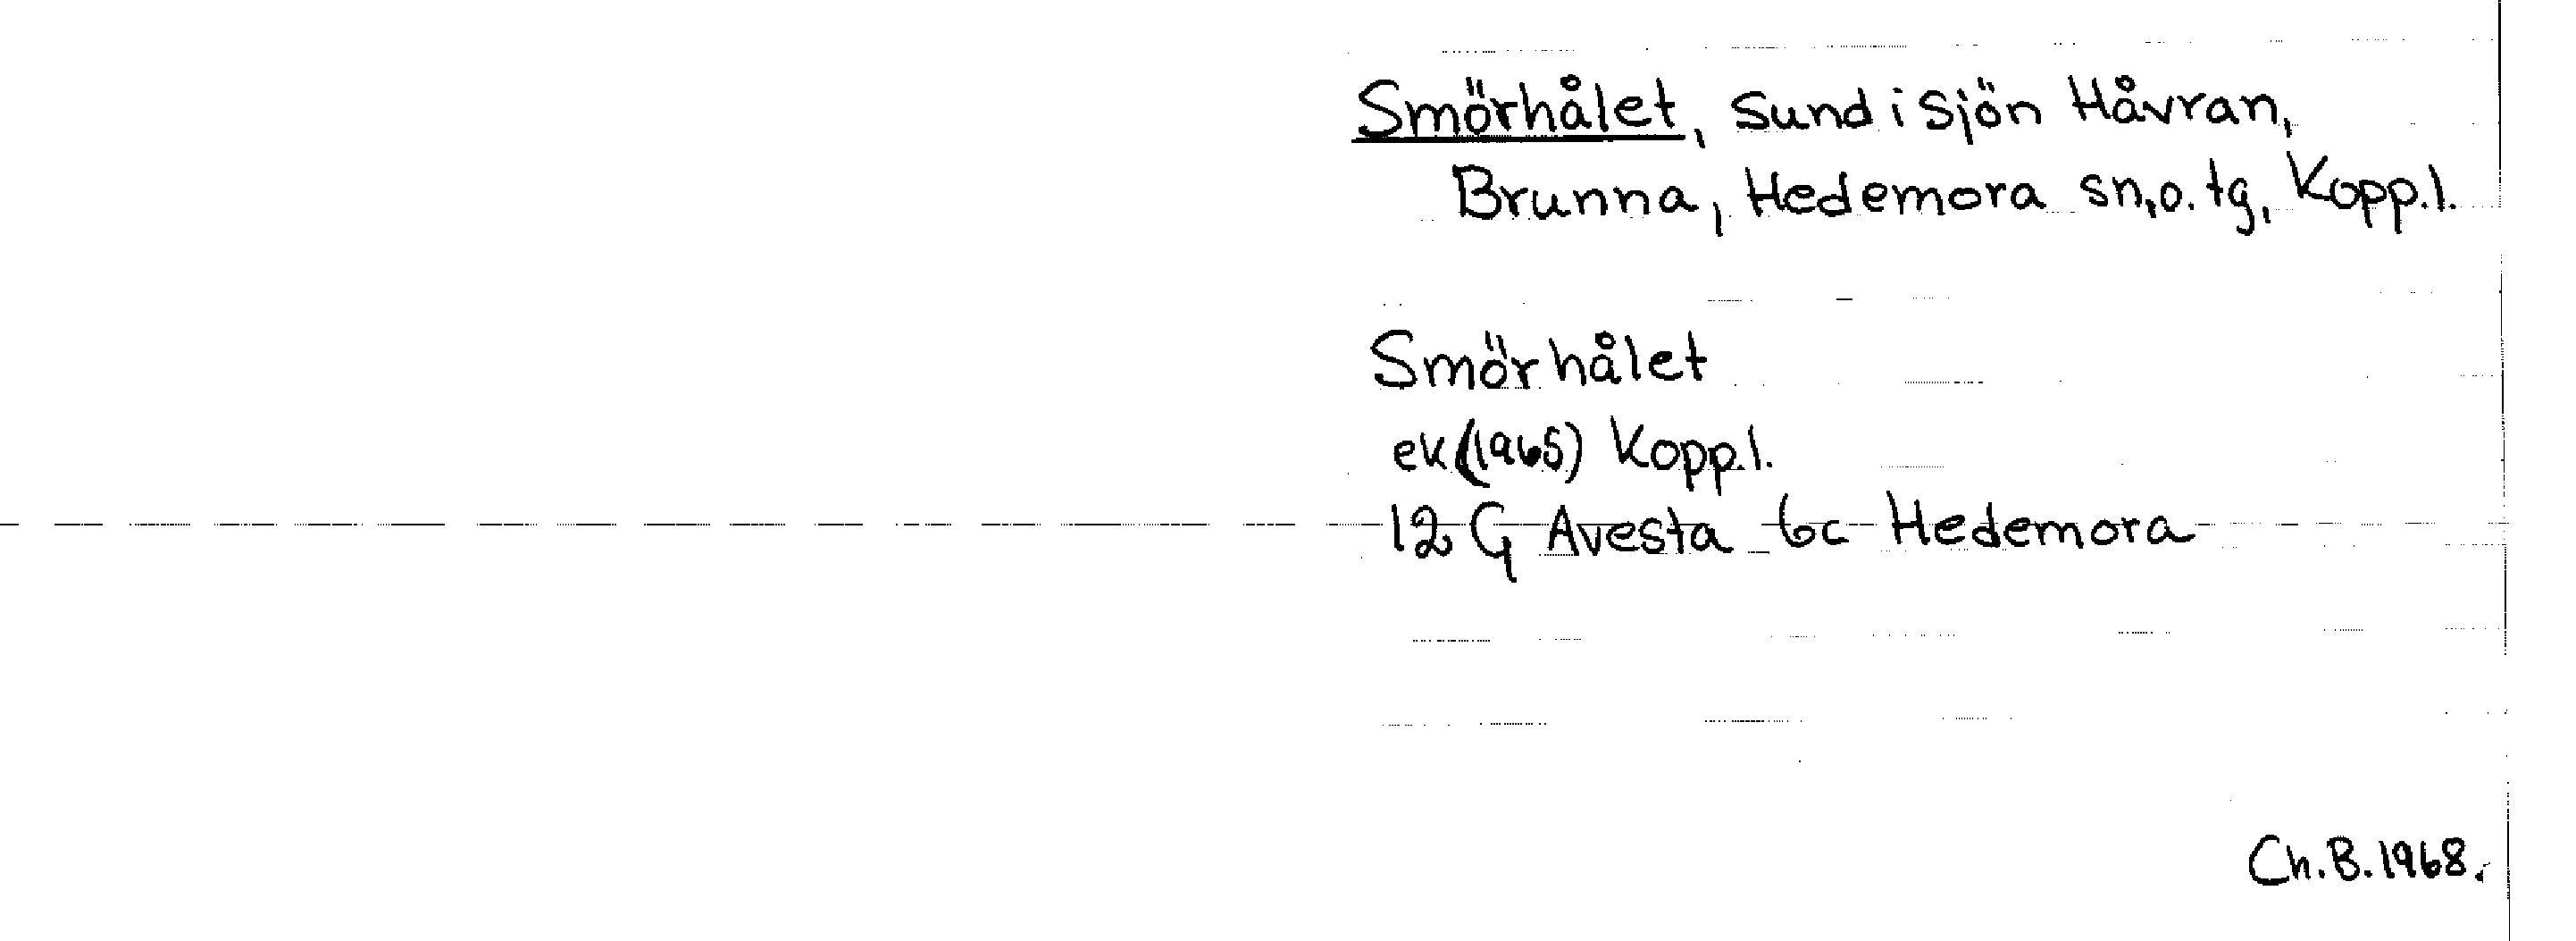 Smörhålet, sund i sjön Håvran,
Brunna, Hedemora sn, o. tg, Kopp.l.
Smörhålet
ek (1965) Kopp.l.
12 G Avesta 6c Hedemora
Ch.B.1968.